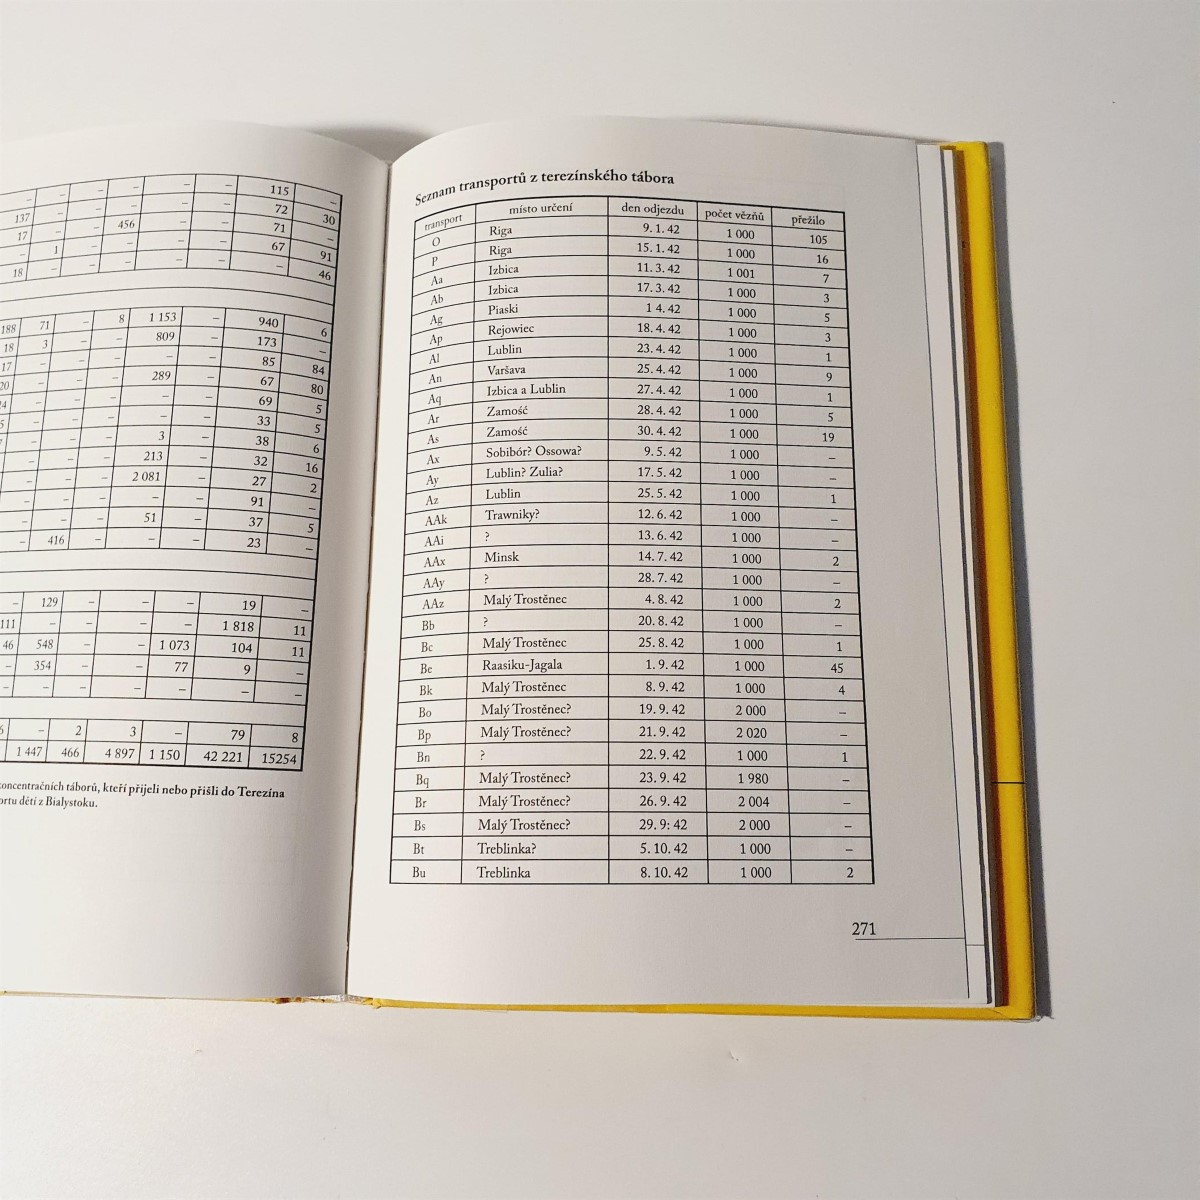 – – – – – – 115 –
137 – – – – – 72 30
17 – – 456 – – 71 –
– 1 – – – – 67 91
18 – – – – – – 46
188 71 – 8 1 153 – 940 6
18 3 – – 809 – 173 –
17 – – – – – 85 84
20 – – – 289 – 67 80
– – – – – 69 5
– – – – – 33 5
– – – 3 – 38 6
– – – 213 – 32 16
– – – 2 081 – 27 2
– – – – – 91 –
– – – – 51 – 37 5
– 416 – – – – 23 –
– 129 – – – 19 –
111 – – – – – 1 818 11
46 548 – – 1 073 104 11
– 354 – – 77 9 –
– – – – – – –
– 2 3 – 79 8
1 447 466 4 897 1 150 42 221 15254
koncentračních táborů, kteří přijeli nebo přišli do Terezína
dětí z Bialystoku.
Seznam transportů z terezínského tábora
transport místo určení den odjezdu počet vězňů přežilo
O Riga 9. 1. 42 1 000 105
P Riga 15. 1. 42 1 000 16
Aa Izbica 11. 3. 42 1 001 7
Ab Izbica 17. 3. 42 1 000 3
Ag Piaski 1 4. 42 1 000 5
Ap Rejowiec 18. 4. 42 1 000 3
Al Lublin 23. 4. 42 1 000 1
An Varšava 25. 4. 42 1 000 9
Aq Izbica a Lublin 27. 4. 42 1 000 1
Ar Zamość 28. 4. 42 1 000 5
As Zamość 30. 4. 42 1 000 19
Ax Sobibór? Ossowa? 9. 5. 42 1 000 –
Ay Lublin? Zulia? 17. 5. 42 1 000 –
Az Lublin 25. 5. 42 1 000 1
AAk Trawniky? 12. 6. 42 1 000 –
AAi ? 13. 6. 42 1 000 –
AAx Minsk 14. 7. 42 1 000 2
AAy ? 28. 7. 42 1 000 –
AAz Malý Trostěnec 4. 8. 42 1 000 2
Bb ? 20. 8. 42 1 000 –
Bc Malý Trostěnec 25. 8. 42 1 000 1
Be Raasiku-Jagala 1. 9. 42 1 000 45
Bk Malý Trostěnec 8. 9. 42 1 000 4
Bo Malý Trostěnec? 19. 9. 42 2 000 –
Bp Malý Trostěnec? 21. 9. 42 2 020 –
Bn ? 22. 9. 42 1 000 1
Bq Malý Trostěnec? 23. 9. 42 1 980 –
Br Malý Trostěnec? 26. 9. 42 2 004 –
Bs Malý Trostěnec? 29. 9: 42 2 000 –
Bt Treblinka? 5. 10. 42 1 000 –
Bu Treblinka 8. 10. 42 1 000 2
271